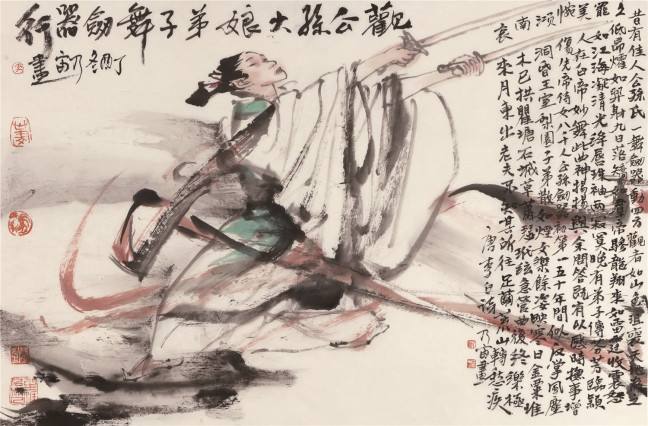 觀公孫大娘弟子舞劍器行
乃宙畫
昔有佳人公孫氏一舞劍器動四方觀者如山色沮喪天地為之
久低昂㸌如羿射九日落矯如群帝驂龍翔來如雷霆收震怒
罷如江海凝清光絳唇珠袖兩寂寞晚有弟子傳芬芳臨潁
美人在白帝妙舞此曲神揚揚與余問答既有以感時撫事增
惋傷先帝侍女八千人公孫劍器初第一五十年間似反掌風塵
澒洞昏王室梨園子弟散如煙女樂餘姿映寒日金粟堆
南木已拱瞿塘石城草蕭瑟玳筵急管曲復終樂極
哀來月東出老夫不知其所往足繭荒山轉愁疾
唐李白詩乃宙畫